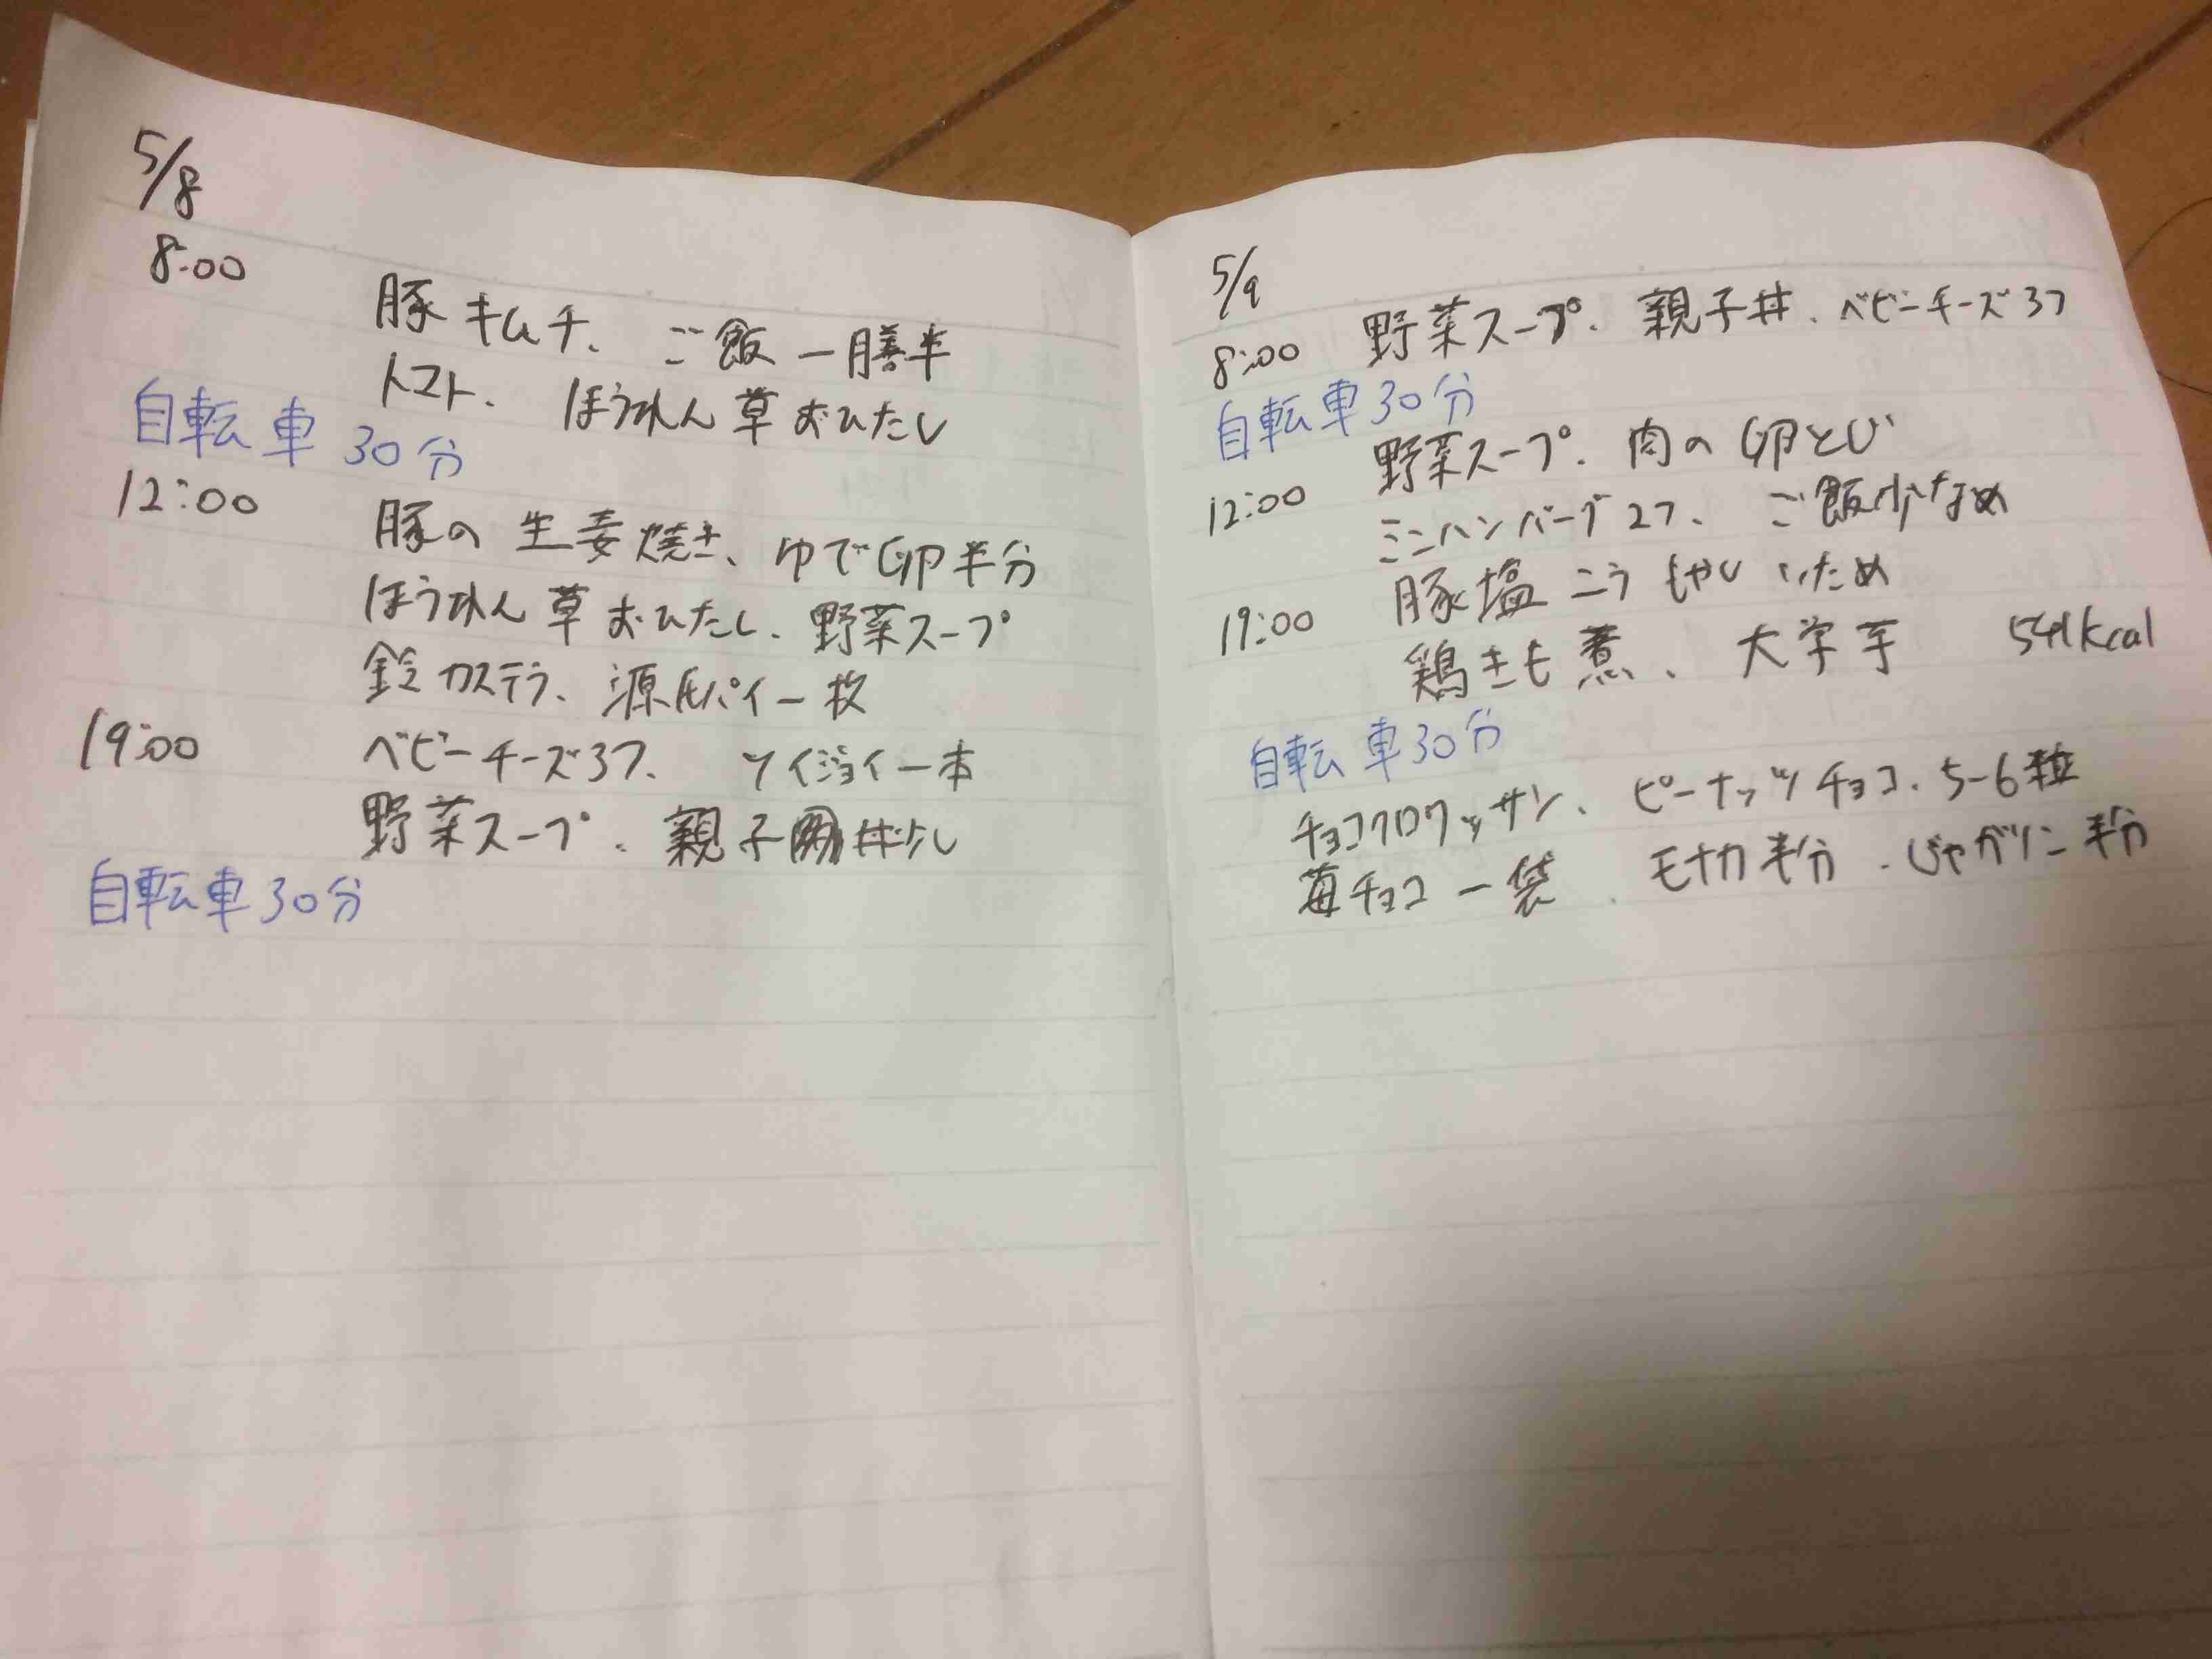 5/8
8:00
豚キムチ、ご飯一膳半
トマト、ほうれん草おひたし
自転車30分
12:00
豚の生姜焼き、ゆで卵半分
ほうれん草おひたし、野菜スープ
鈴カステラ、源氏パイ一枚
19:00 ベビーチーズ3つ、ソイジョイ一本
野菜スープ、親子丼少し
自転車30分
5/9
8:00 野菜スープ、親子丼、ベビーチーズ3つ
自転車30分
12:00 野菜スープ、肉の卵とじ
ミニハンバーグ2つ、ご飯少なめ
19:00 豚塩こうじやしいため
鶏きも煮、大学芋 541kcal
自転車30分
チョコクロワッサン、ピーナッツチョコ、5-6粒
苺チョコ一袋、モナカ半分、じゃがりこ半分